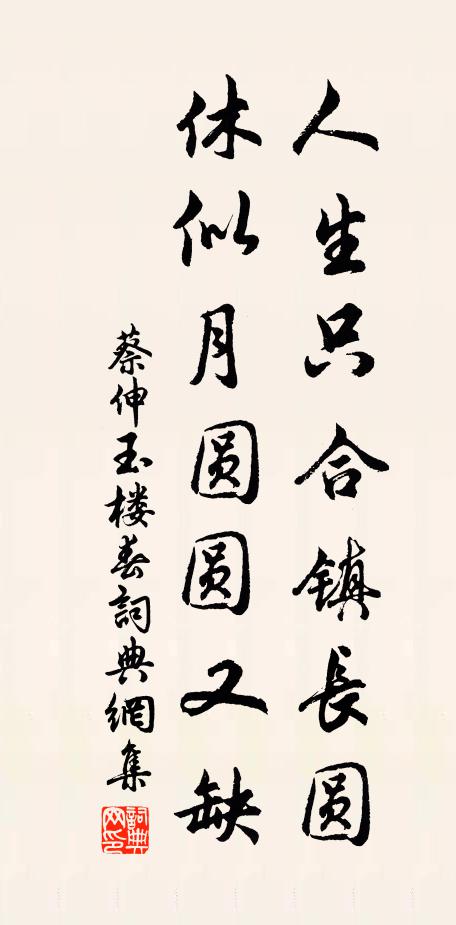 人生只合镇長圆
休似月圆圆又缺
蔡伸玉楼春詞典網集
詞典网印